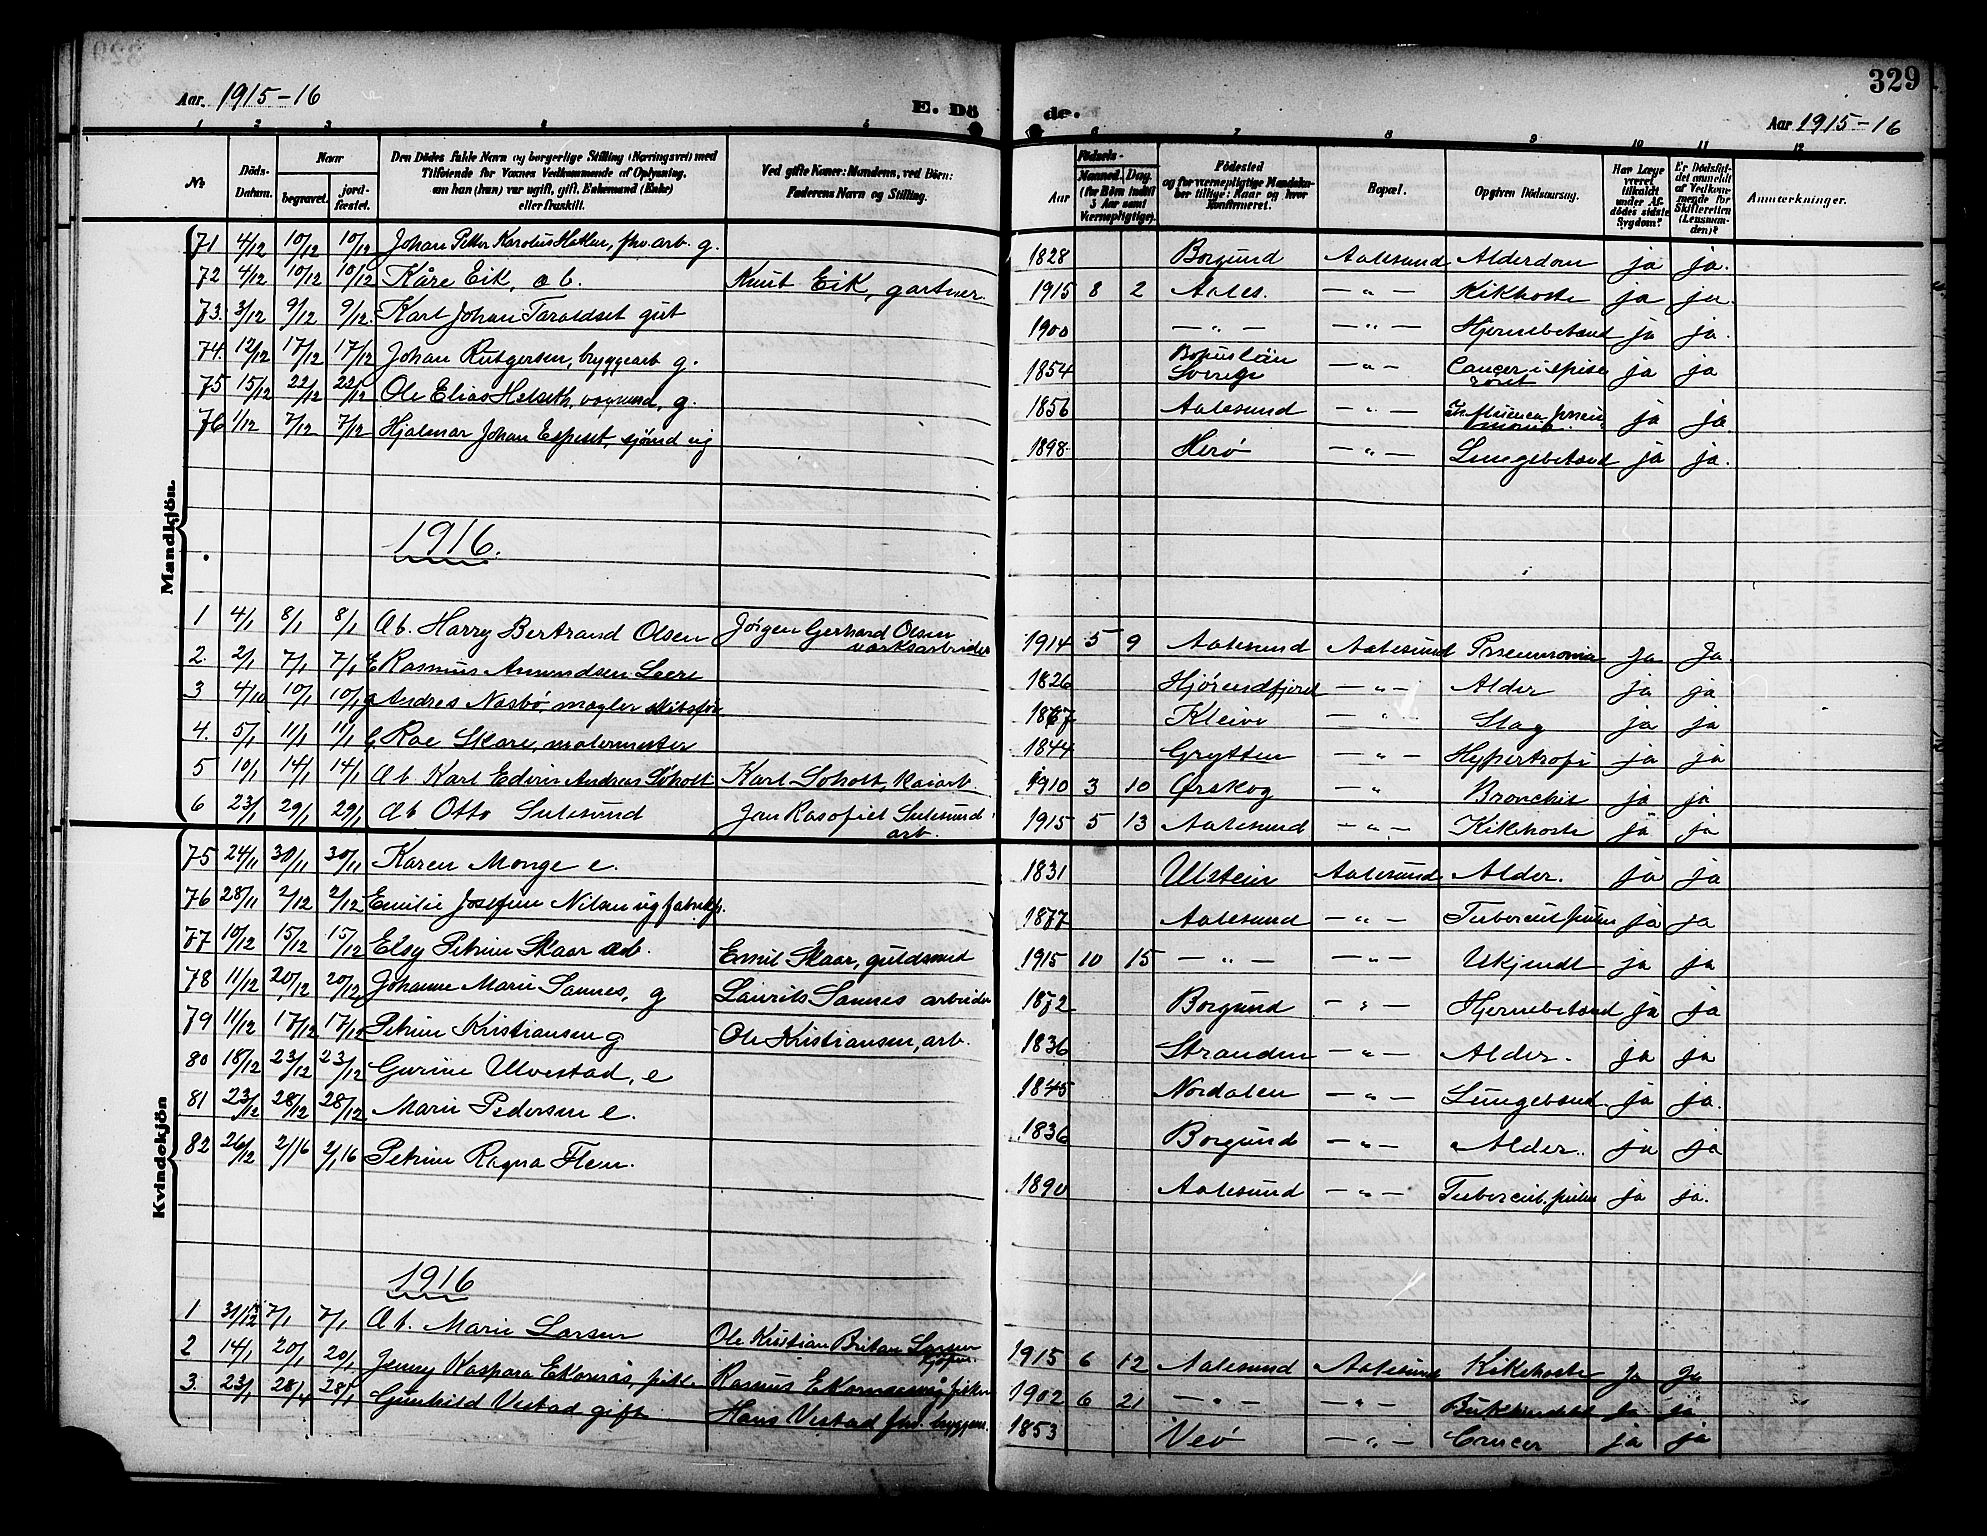 329
Aar. 1915-16
E. Dö de.
Aar 1915-16
No
Döds-Datum.
Naar
begravet.
jord-fæstet.
Den Dödes fulde Navn og borgerlige Stilling (Næringsvei) med
Tilföiende for Voxnes Vedkommende af Oplysning,
om han (hun) var ugift, gift, Enkemand (Enke)
eller fraskilt.
Ved gifte Koner: Mandens, ved Börn:
Faderens Navn og Stilling.
Födsels-
Aar
Maaned. Dag.
(for Börn indtil
5 Aar samt
Værnepligtige).
Födested
og for værnepligtige Mandskaber tillige: Naar og hvor
Konfirmeret.
Bopæl.
Opgiven Dödsaarsag.
Har Læge
været
tilkaldt
under Afdödes sidste
Sygdom?
Er Dödsfaldet anmeldt
af Vedkommende for
Skifteretten
(Lensmanden)?
Anmærkninger.
Mandkjön.
71 4/12 10/12 10/12 Johan Petter Karolus Hatlen, fhv. arb. g. 1828 Borgund Aalesund Alderdom ja ja.
72 4/12 10/12 10/12 Kåre Eik, æ b. Knut Eik, gartner 1915 8 2 Aales. — " — Kikhoste ja ja.
73. 3/12 9/12 9/12. Karl Johan Taraldset gut 1900 — " — — " — Hjernebetænd ja ja.
74. 12/12 17/12 17/12 Johan Rutgersen, bryggearb g. 1854 Bohuslän Sverige — " — Cancer i spiserøret ja ja
75 15/12 22/12 22/12 Ole Elias Helseth, vognmd, g. 1856 Aalesund — " — Influenca ja ja.
76 1/12 7/12 7/12 Hjalmar Johan Espeset, sjømd ug 1898 Herø — " — Lungebetænd ja ja.
1916.
1 4/1 8/1 8/1 Æb. Harry Bertrand Olsen Jörgen Gerhard Olsen verksarbeider 1914 5 9 Aalesund Aalesund Pneumonia ja Ja
2. 2/1 7/1 7/1 E Rasmus Amundsen Leere 1826 Hjörendfjord — " — Alder ja ja
3 4/10 10/1 10/1 g Andres Nasbö, mægler skibsför 1867 Kleive — " Slag ja ja
4. 5/1 11/1 11/1 G Roe Skare, malermester 1844 Grytten — " — Hypertrofi ja ja
5 10/1 14/1 14/1 Æb Karl Edvin Andreas Söholt Karl Soholt, kaiarb 1910 3 10 Ørskog — " Bronchit ja ja
6 23/1 29/1 29/1 Æb Otto Sulesund Jon Rasofiel Sulesund arb. 1915 5 13 Aalesund — " — Kikhoste ja ja
Kvindekjön
75 24/11 30/11 30/11 Karen Monge e. 1831 Ulstein Aalesund Alder. ja ja
76 28/11 2/12 2/12 Emilie Josefine Nilsen ug fabrikp. 1877 Aalesund — " — Tubercul. pulm ja ja
77 10/12 15/12 15/12 Elsy Petrine Skaar æb. Emil Skaar, guldsmed 1915 10 15 — " — — " — Ukjendt ja ja
78 11/12 20/12 20/12 Johanne Marie Sannes, g Laurits Sannes arbeider 1872 Borgund — " — Hjernebetænd ja ja
79 11/12 17/12 17/12 Petrine Kristiansen g Ole Kristiansen, arb. 1836 Stranden — " — Alder. ja ja
80 18/12 23/12 23/12 Gurine Ulvestad, e 1845 Nordalen — " — Lungebænd. ja ja.
81 23/12 28/12 28/12 Marie Pedersen e. 1836 Borgund — " — Alder. ja ja
82 26/12 2/1 16 2/1 16 Petrine Ragna Flem. 1890 Aalesund — " — Tubercul. pulm ja ja.
1916
1 31/12 15 7/1 7/1 Æb. Marie Larsen Ole Kristian Larsen 1915 6 12 Aalesund Aalesund Kikhoste Ja Ja
2 14/1 20/1 20/1 Jenny Kaspara Ekornås, Rasmus fisker 1902 6 21 — " — — " — ja ja
3. 23/1 28/1 28/1 Gunhild Vestad gift Hans Vestad fhv. 1853 Veö — " — Cancer ja ja